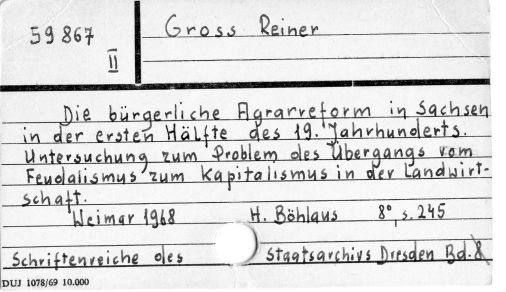 59 867
II
Gross Reiner
Die bürgerliche Agrarreform in Sachsen
in der ersten Hälfte des 19. Jahrhunderts.
Untersuchung zum Problem des Übergangs vom
Feudalismus zum Kapitalismus in der Landwirt-
schaft.
Weimar 1968 H. Böhlaus 8°, s. 245
Schriftenreihe des Staatsarchivs Dresden Bd. 8
DUJ 1078/69 10.000